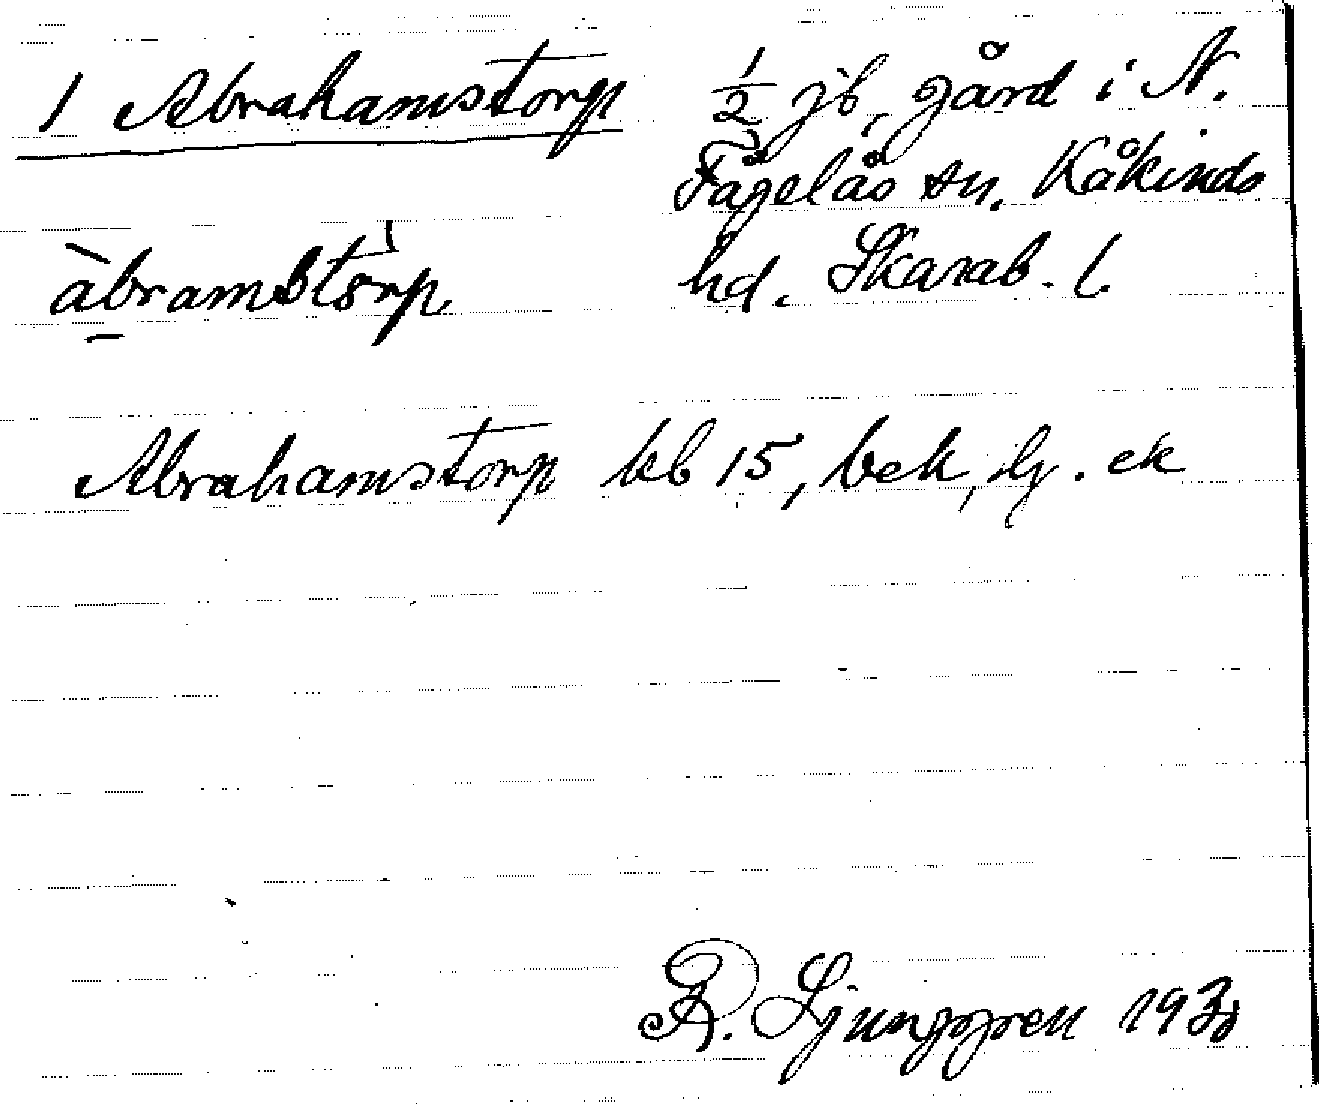 1 Abrahamstorp ½ jb, gård i N.
Fågelås sn. Kåkinds
àbramstòrp hd. Skarab. l.
Abrahamstorp kb 15, bek, ilg. ek
R. Ljunggren